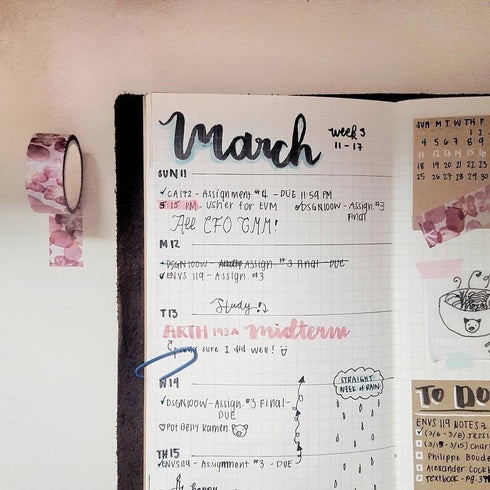 March
week 3
11 - 17
SUN 11
CA172 - Assignment #4 - DUE 11:59 PM
5:15 PM - Usher for EVM
DSGN100W - Assign. #3
Final
All CFO GMM!
M 12
DSGN100W - Assign. #3 Final - DUE
ENVS 119 - Assign. #3
T 13
Study
ARTH 193A midterm
sure I did well!
W 14
DSGN100W - Assign. #3 Final -
DUE
Pot Belly Ramen
STRAIGHT
WEEK OF RAIN
TH 15
ENVS119 - Assignment #3 - DUE
Be happy
SUN M T W TH F
1 2
4 5 6 7 8 9
11 12 13 14 15 16
18 19 20 21 22 23
25 26 27 28 29 30
TO DO
ENVS 119 NOTES
(3/6 - 3/8)
(3/13 - 3/15)
Philippe
Alexander
Textbook - pg.